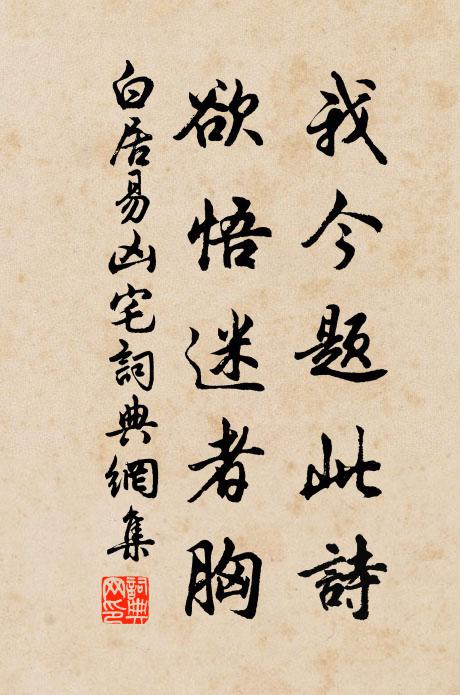 我今題此詩
欲悟迷者胸
白居易凶宅詞典網集
詞典網印